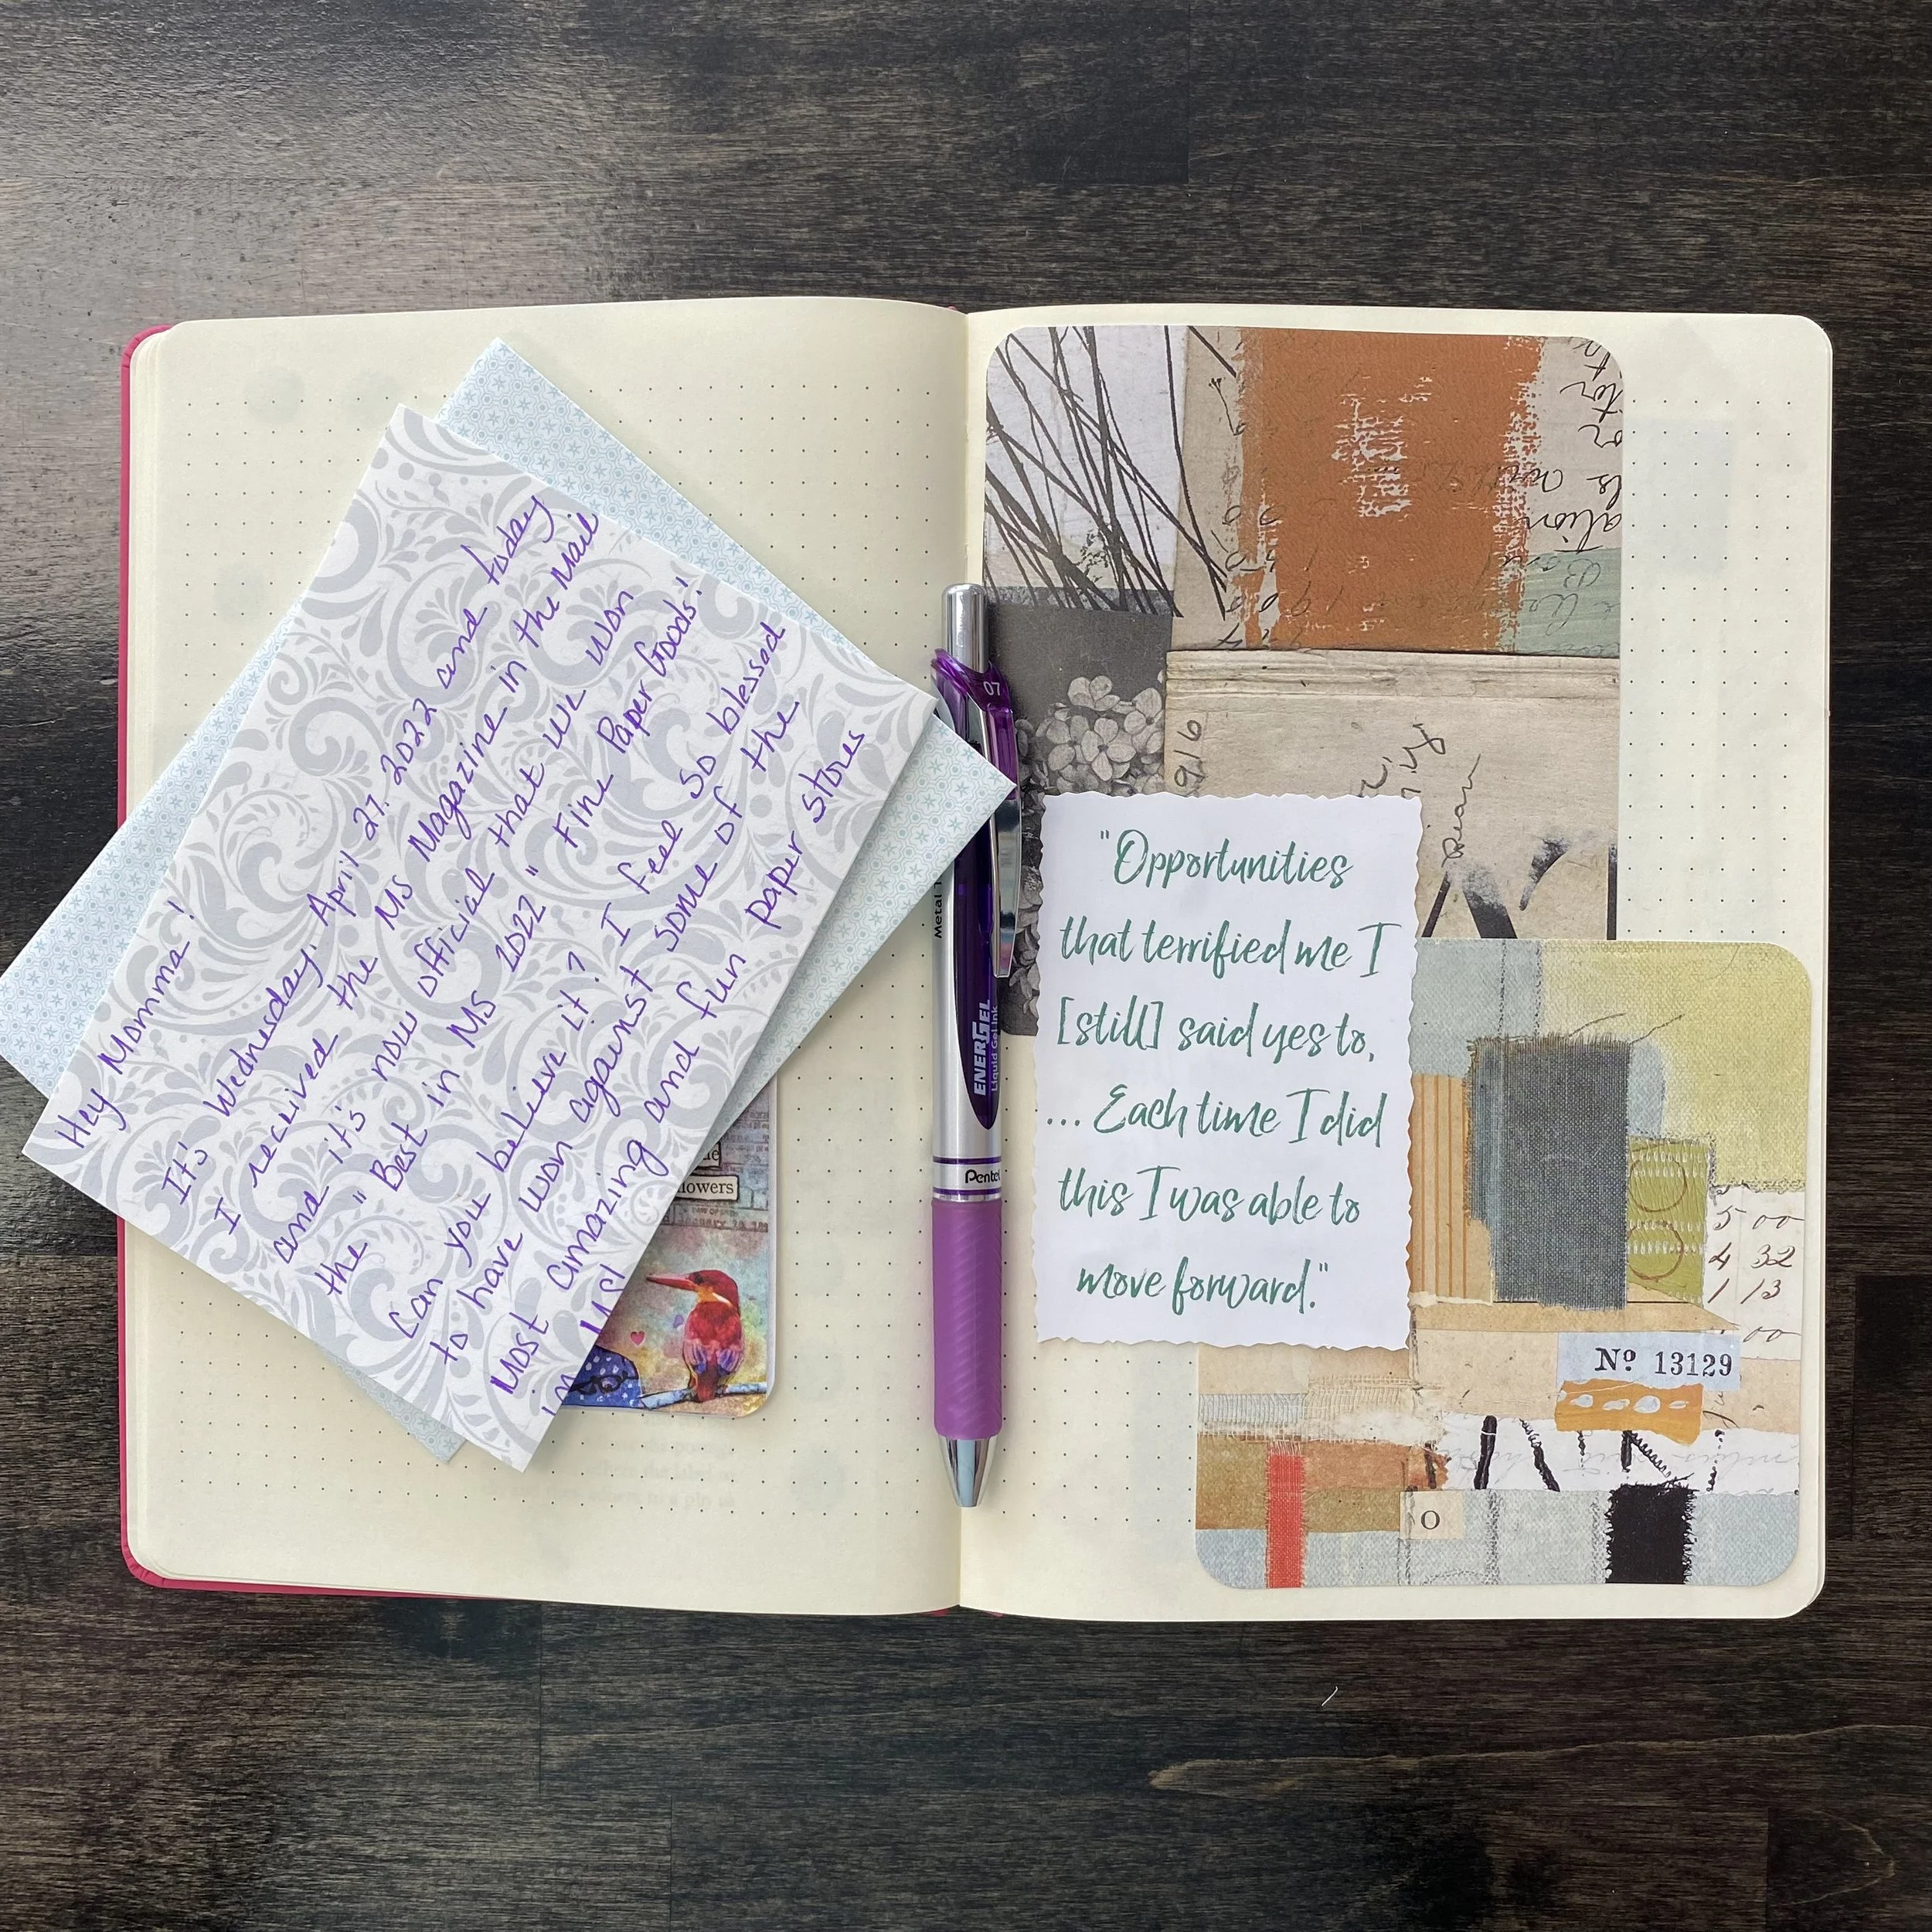 Hey Momma!
It's Wednesday, April 27, 2022 and today
I received the MS Magazine in the Mail
and it's now official that we won
the "Best in MS 2022" Fine Paper Goods!
Can you believe it? I feel so blessed
to have won against some of the
Most amazing and fun paper stores
in MS!
lowers
07
Metal
ENERGEL
Liquid Gel Ink
Pentel
"Opportunities
that terrified me I
[still] said yes to,
... Each time I did
this I was able to
move forward."
916
5 00
4 32
1 13
00
Nº 13129
O